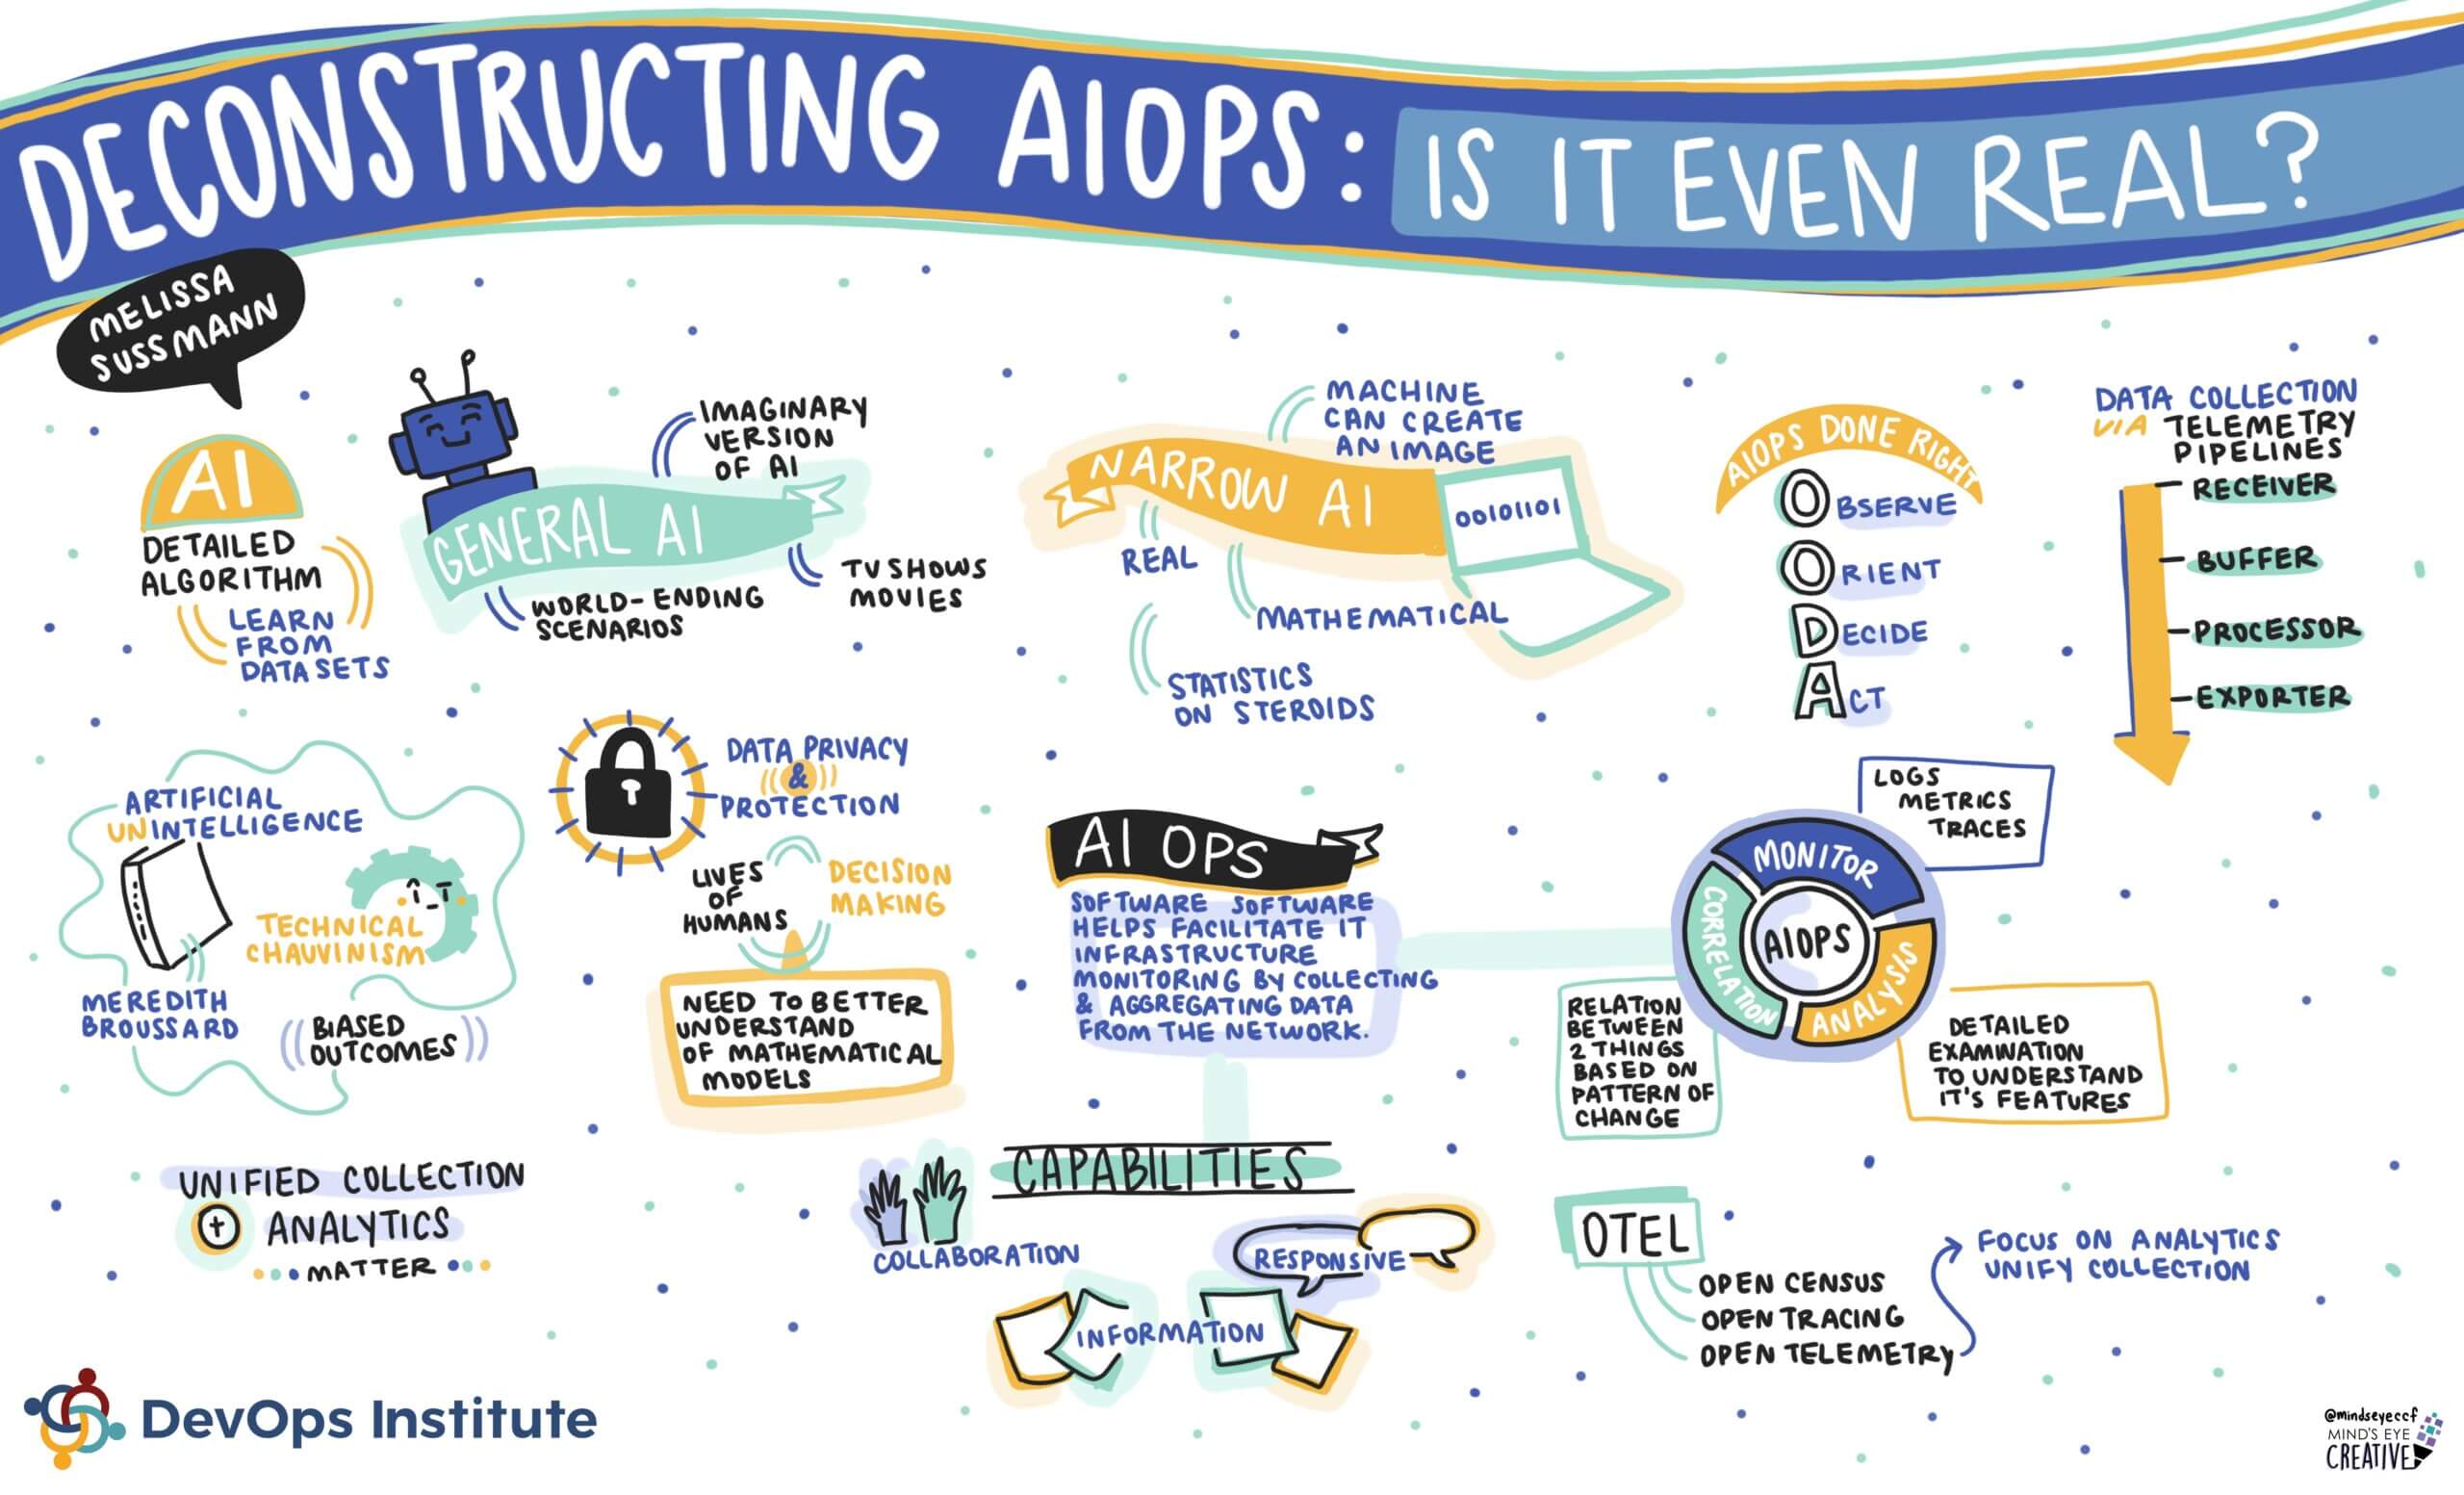 DECONSTRUCTING AIOPS: IS IT EVEN REAL?
MELISSA
SUSSMANN
AI
DETAILED
ALGORITHM
LEARN
FROM
DATA SETS
GENERAL AI
IMAGINARY
VERSION
OF AI
WORLD-ENDING
SCENARIOS
TV SHOWS
MOVIES
NARROW AI
MACHINE
CAN CREATE
AN IMAGE
00101101
REAL
MATHEMATICAL
STATISTICS
ON STEROIDS
AIOPS DONE RIGHT
OBSERVE
ORIENT
DECIDE
ACT
DATA COLLECTION
VIA TELEMETRY
PIPELINES
RECEIVER
BUFFER
PROCESSOR
EXPORTER
ARTIFICIAL
UNINTELLIGENCE
TECHNICAL
CHAUVINISM
MEREDITH
BROUSSARD
BIASED
OUTCOMES
DATA PRIVACY
&
PROTECTION
LIVES
OF
HUMANS
DECISION
MAKING
NEED TO BETTER
UNDERSTAND
OF MATHEMATICAL
MODELS
AI OPS
SOFTWARE SOFTWARE
HELPS FACILITATE IT
INFRASTRUCTURE
MONITORING BY COLLECTING
& AGGREGATING DATA
FROM THE NETWORK.
LOGS
METRICS
TRACES
MONITOR
CORRELATION
AIOPS
ANALYSIS
RELATION
BETWEEN
2 THINGS
BASED ON
PATTERN OF
CHANGE
DETAILED
EXAMINATION
TO UNDERSTAND
IT'S FEATURES
UNIFIED COLLECTION
+ ANALYTICS
MATTER
CAPABILITIES
COLLABORATION
RESPONSIVE
INFORMATION
OTEL
OPEN CENSUS
OPEN TRACING
OPEN TELEMETRY
FOCUS ON ANALYTICS
UNIFY COLLECTION
DevOps Institute
@mindseyeccf
MIND'S EYE
CREATIVE